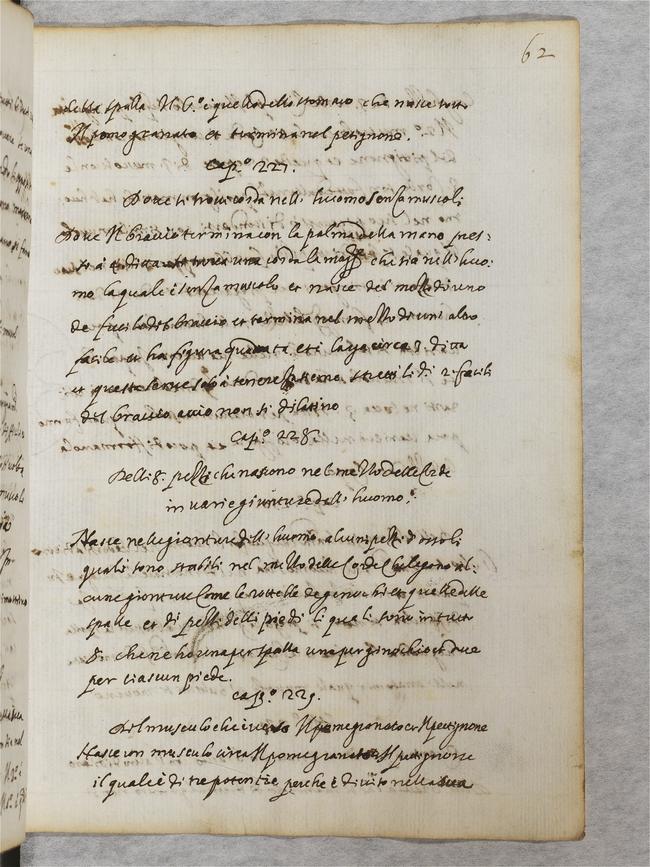 62
della spalla Il 6.º è quello dello stomaco che nasce sotto
Il pomo granato et termina nel petignone.
Cap.º 227.
Dove si trovi corda nell' huomo senza muscoli
Dove Il braccio termina con la palma della mano pres:
so a 4 ditta una corda la magg.re che sia nell' huo:
mo la quale è senza muscolo et nasce del mezzo di uno
de fucili del braccio et termina nel mezzo di un' altro
facile et ha figura quadrata et è larga circa 3 ditta
et questa serve solo a tenere Insieme stretti li di 2 facili
del braccio accio non si dilatino
Cap.º 228.
Delli 8. pezzi che nascono nel mezzo delle Corde
in varie giunture dell' huomo.
Nasce nelle gionture dell' huomo alcuni pezzi d'ossi li
quali sono stabili nel mezzo delle Corde che legono al:
cune gionture Come le rottelle de genochi et quelle delle
spalle et di pezzi delli piedi li quali sono in tutto
8. che ne ho una per spalla una per ginochio et due
per ciascun piede.
cap.º 229.
Del musculo che è verso Il pomegranato et Il petignone
Nasce un musculo circa Il pomegranato et Il petignone
il quale è di tre potentie perche è diviso nella sua